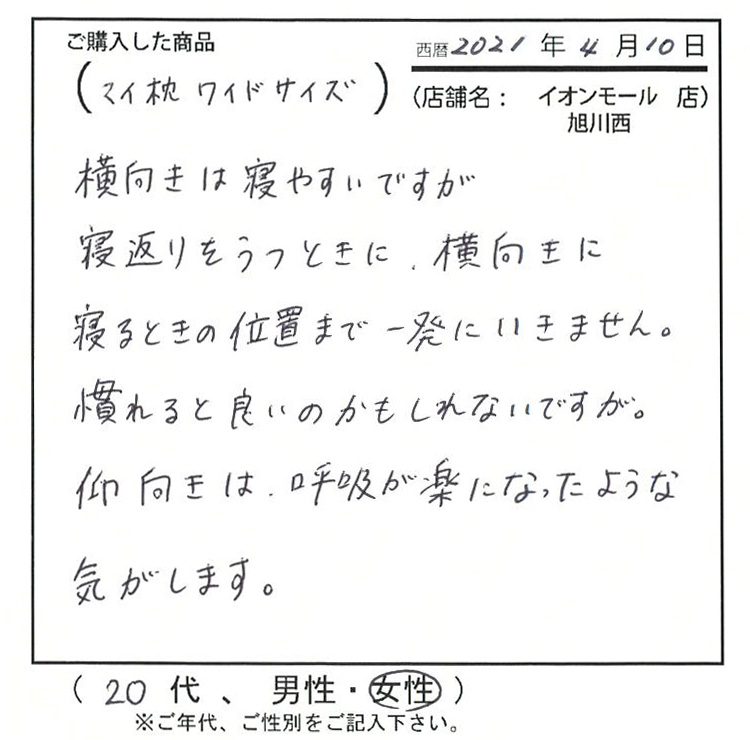 ご購入した商品
西暦2021年4月10日
(マイ枕 ワイドサイズ)
(店舗名: イオンモール 店)
旭川西
横向きは寝やすいですが
寝返りをうつときに、横向きに
寝るときの位置まで一発にいきません。
慣れると良いのかもしれないですが。
仰向きは、呼吸が楽になったような
気がします。
(20代、男性・女性)
※ご年代、ご性別をご記入下さい。